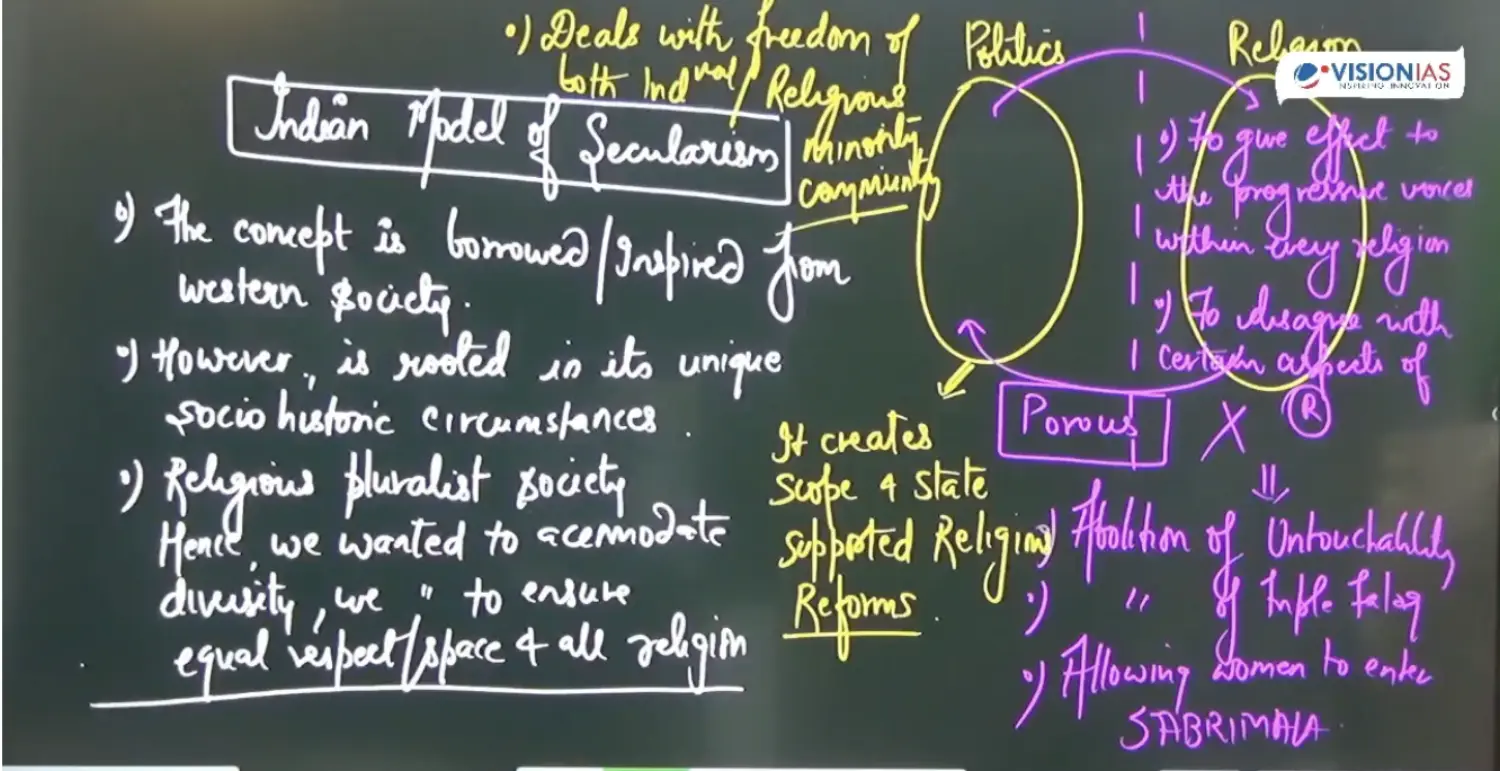 •) Deals with freedom of
both Indvual / Religious
minority
community
Indian Model of Secularism
•) The concept is borrowed/Inspired from
western society.
•) However, is rooted in its unique
socio historic circumstances.
•) Religious pluralist society
Hence, we wanted to acemodate
diversity, we " to ensure
equal respect/space 4 all religion
Politics
Religion
VISIONIAS
INSPIRING INNOVATION
•) To give effect to
the progressive voices
within every religion
•) To disagree with
certain aspects of
R
Porous X
It creates
scope 4 state
supported Religion
Reforms.
•) Abolition of Untouchability
•) " of Triple Talaq
•) Allowing women to enter
SABRIMALA